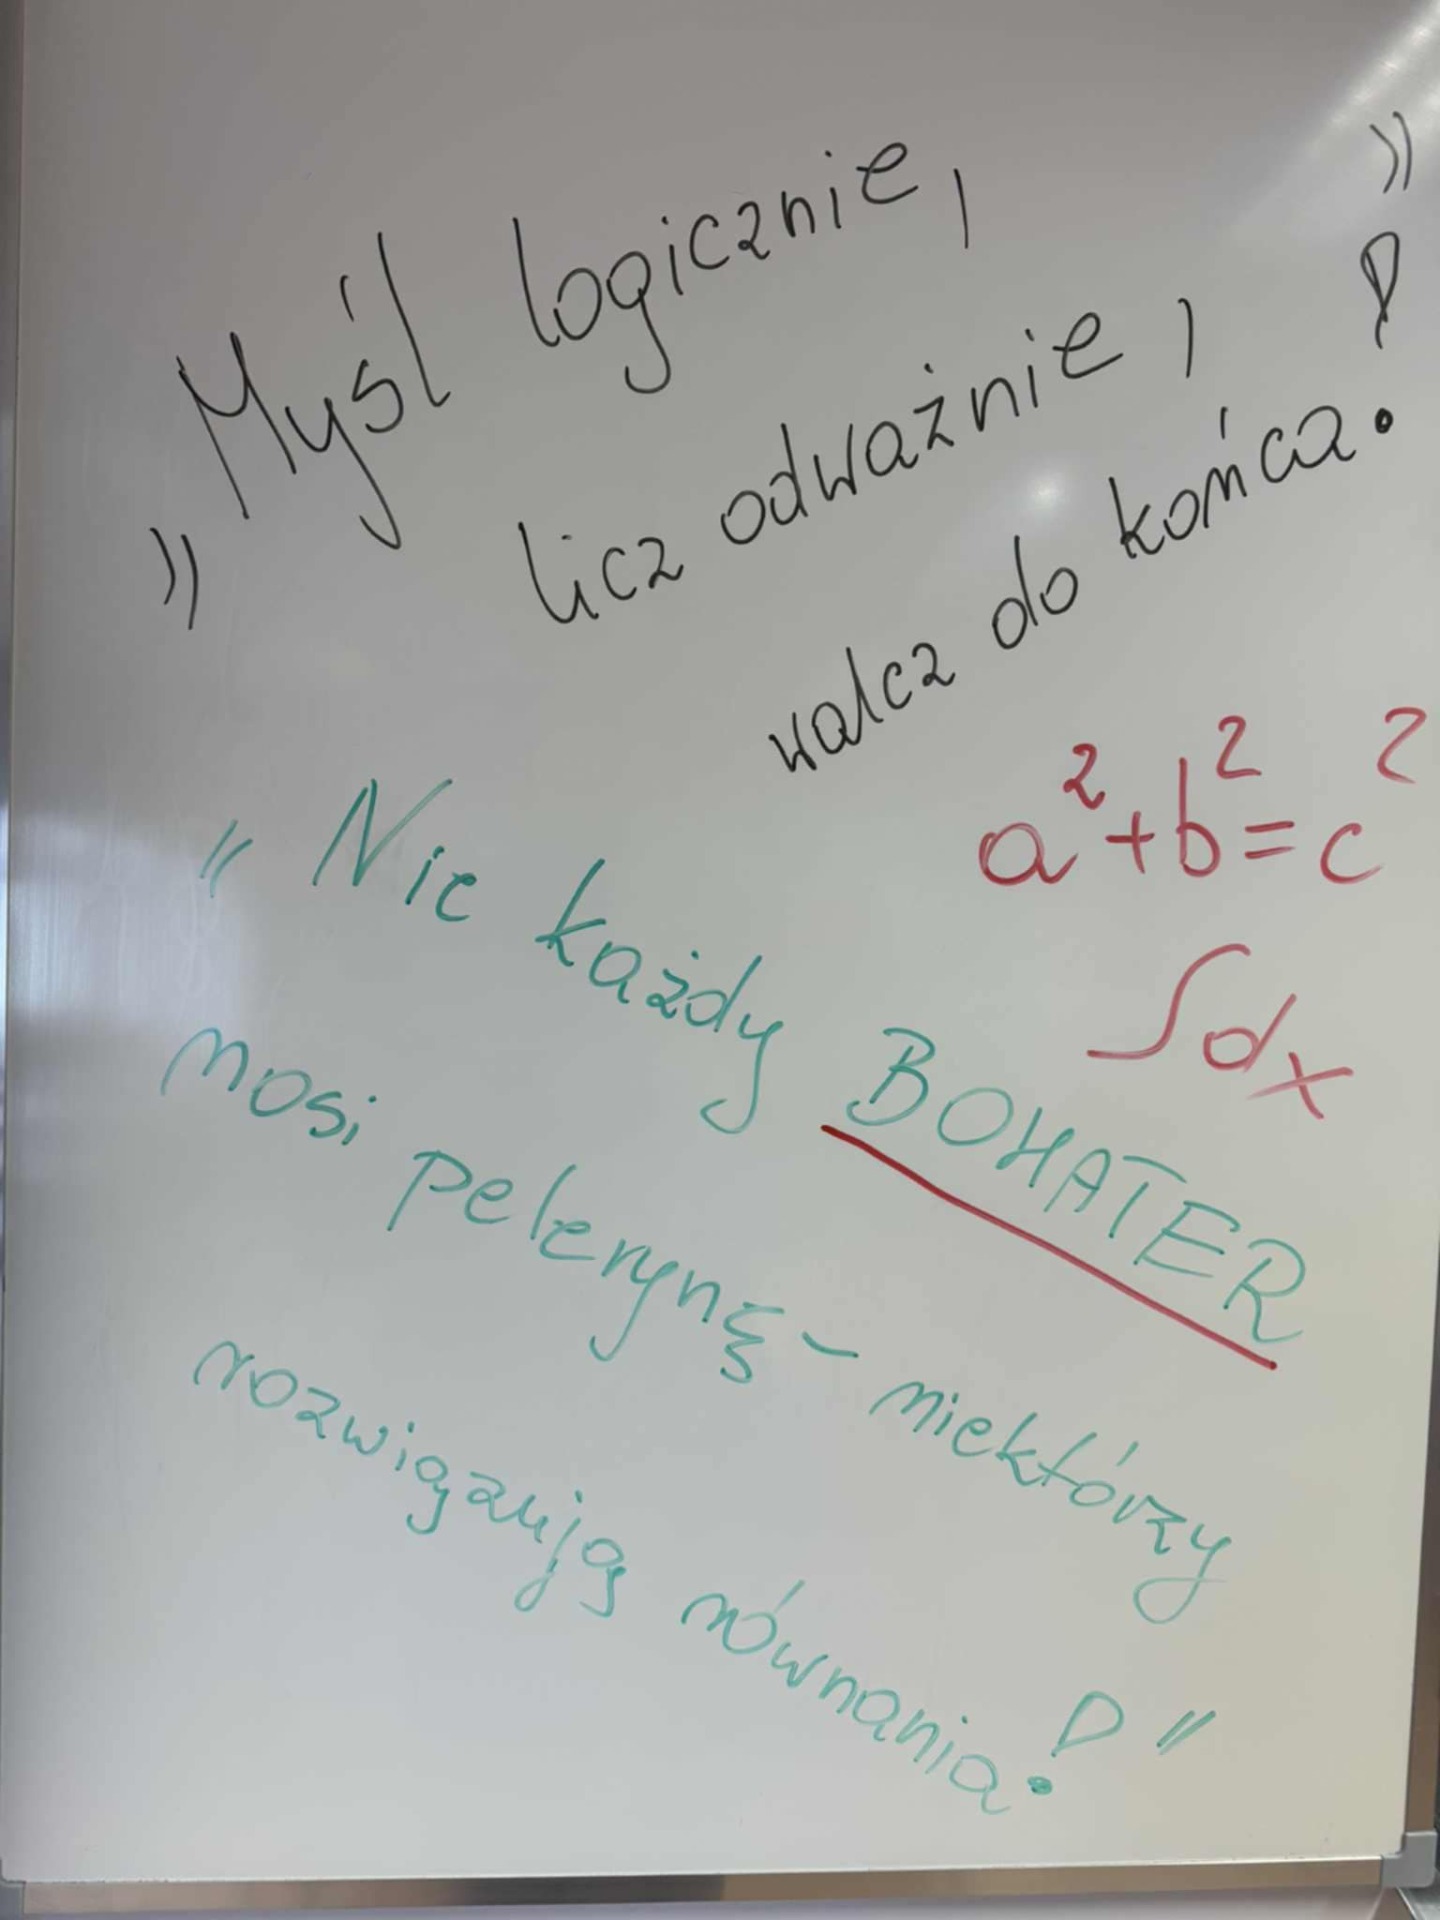 „Myśl logicznie,
licz odważnie,
walcz do końca!”
a²+b²=c²
∫dx
"Nie każdy BOHATER
nosi pelerynę - niektórzy
rozwiązują równania!"